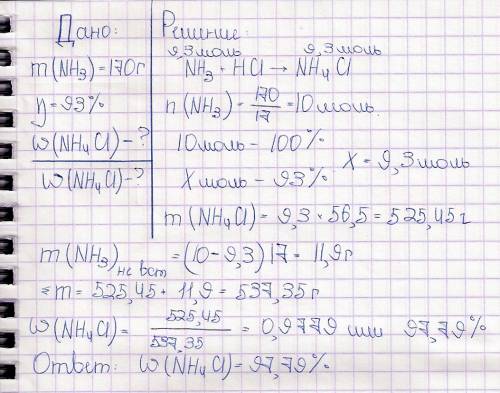 Дано:
m(NH₃)=170г
η=93%
ω(NH₄Cl)-?
ω(NH₄Cl)-?
Решение:
9,3моль 9,3моль
NH₃ + HCl → NH₄Cl
n(NH₃) = 170/17 = 10моль.
10моль - 100%
X = 9,3моль
Xмоль - 93%
m(NH₄Cl) = 9,3 * 56,5 = 525,45г
m(NH₃) не вст = (10-9,3)17 = 11,9г
m = 525,45 + 11,9 = 537,35г
ω(NH₄Cl) = 525,45/537,35 = 0,9779 или 97,79%
Ответ: ω(NH₄Cl) = 97,79%